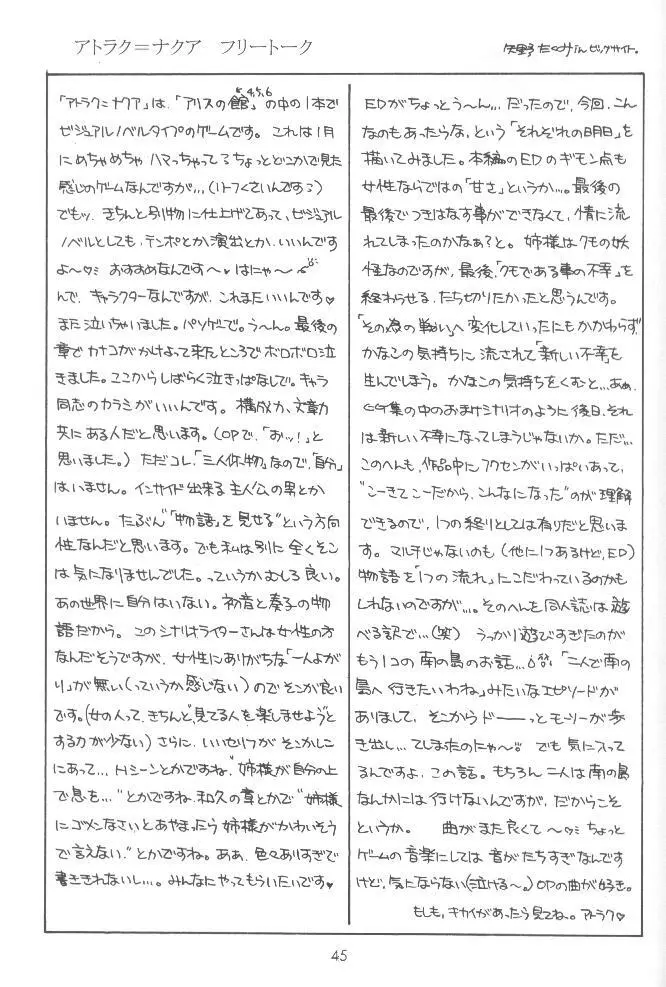 アトラク=ナクア フリートーク
矢野たくみinビッグサイト。
「アトラク=ナクア」は、「アリスの館4,5,6」の中の1本で
ビジュアルノベルタイプのゲームです。これは1月
にめちゃめちゃハマっちゃってるちょっとどこかで見た
感じのゲームなんですが…、(リーフくさいんです?)
でもッ、きちんと別物に仕上げてあって、ビジュアル
ノベルとしても、テンポとか演出とか、いいんです
よ〜♡ おすすめなんです〜♥はにゃ〜
んで、キャラクターなんですが、これまたいいんです♡
また泣いちゃいました。パソゲーで。う〜ん。最後の
章でカナコがかけよって来たところでボロボロ泣
きました。ここからしばらく泣きっぱなしで。キャラ
同志のカラミがいいんです。構成力、文章力
共にある人だと思います。(OPで、「おッ!」と
思いました。)ただコレ、「三人体物」なので、「自分」
はいません。インサイド出来る主人公の男とか
いません。たぶん"「物語」を見せる"という方向
性なんだと思います。でも私は別に全くそこ
は気になりませんでした。っていうかむしろ良い。
あの世界に自分はいない。初音と奏子の物
語だから。このシナリオライターさんは女性の方
なんだそうですが、女性にありがちな「一人よが
り」が無い(っていうか感じない)のでそこが良い
です。(女の人って、きちんと"見てる人を楽しませよう"と
する力が少ない)さらに、いいセリフがそこかしこ
にあって…、Hシーンとかですね、"姉様が自分の上
で息を…"とかですね、和久の章とかで"姉様
にゴメンなさいとあやまったら姉様がかわいそう
で言えない"とかですね。ああ、色々ありすぎて
書ききれないし…。みんなにやってもらいたいです♥
EDがちょっとう〜ん…だったので、今回、こん
なのもあったらな、という「それぞれの明日」を
描いてみました。本編のEDのギモン点も
女性ならではの「甘さ」というか…。最後の
最後でつきはなす事ができなくて、情に流
れてしまったのかなぁ?と。姉様はクモの妖
怪なのですが、最後、「クモである事の不幸」を
終わらせる、たち切りたかったと思うんです。
「その為の戦い」へ変化していったにもかかわらず、
かなこの気持ちに流されて「新しい不幸」を
生んでしまう。かなこの気持ちをくむと…ああ。
CG集の中のおまけシナリオのように後日、それ
は新しい不幸になってしまうじゃないか。ただ…
このへんも、作品中にフクセンがいっぱいあって、
"こーきてこーだから、こんなになった"のが理解
できるので、1つの終りとしては有りだと思いま
す。マルチじゃないのも(他に1つあるけど、ED)
物語を「1つの流れ」にこだわっているのかも
しれないのですが…。そのへんを同人誌は遊
べる訳で…(笑) うっかり遊びすぎたのが
もう1コの南の島のお話…「二人で南の
島へ行きたいわね」みたいなエピソードが
ありまして、そこからドーーっとモーソーが歩
き出し…てしまったのにゃ〜 でも気に入って
るんですよ、この話。もちろん二人は南の島
なんかには行けないんですが、だからこそ
というか。 曲がまた良くて〜♡ ちょっと
ゲームの音楽にしては音がたちすぎなんです
けど、気にならない(泣ける〜。)OPの曲が好き。
もしも、キカイがあったら見てね。アトラク♡
45